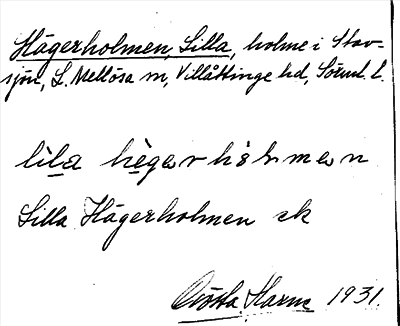 Hägerholmen, Lilla, holme i Stav-
sjön, L. Mellösa sn, Villåttinge hd, Söml. l.
lila hègerhòlmen
Lilla Hägerholmen ek
Gösta 1931.